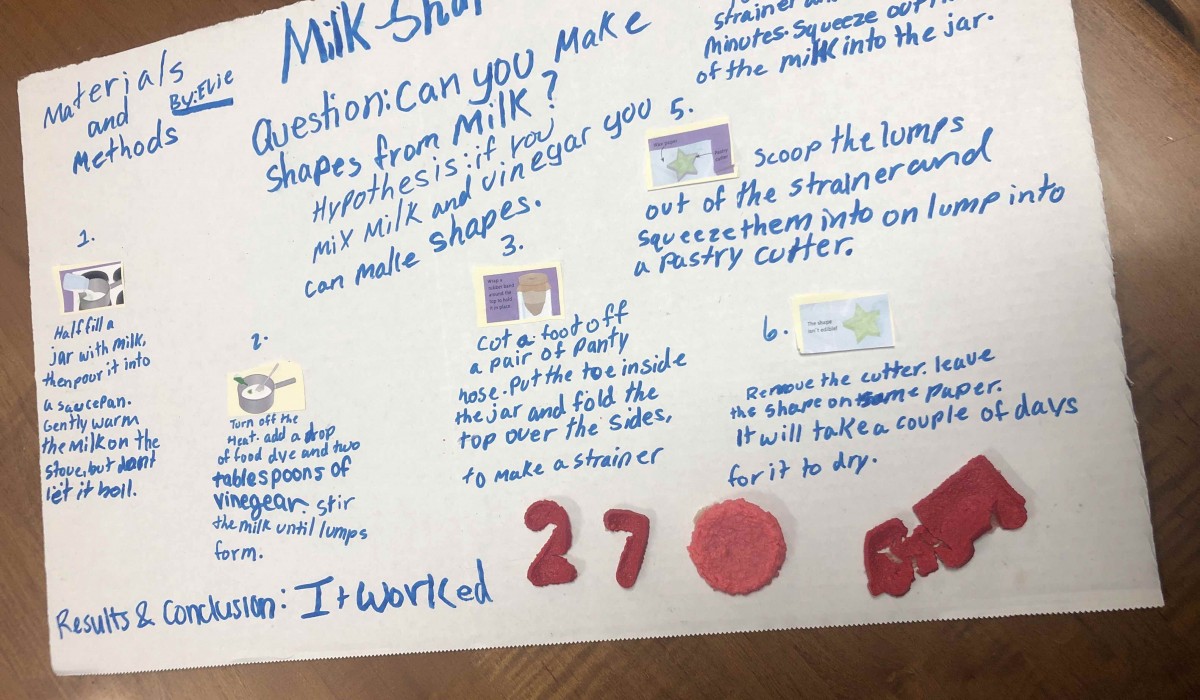 Milk Sha
Materials
and
Methods
By: Evie
Question: Can you Make
shapes from Milk?
Hypothesis: if you
mix Milk and vinegar you
can make shapes.
1.
Half fill a
jar with milk,
then pour it into
a saucepan.
Gently warm
the milk on the
stove, but dont
let it boil.
2.
Turn off the
Heat. add a drop
of food dye and two
tablespoons of
vinegear. stir
the milk until lumps
form.
3.
Wrap a
rubber band
around the
top to hold
it in place.
Cut a foot off
a pair of Panty
hose. Put the toe inside
the jar and fold the
top over the sides,
to make a strainer
strainer
Minutes. Squeeze out
of the milk into the jar.
5.
Scoop the lumps
out of the strainer and
squeeze them into on lump into
a Pastry cutter.
6.
The shape
isn't edible!
Remove the cutter. leave
the shape on some paper.
It will take a couple of days
for it to dry.
Results & Conclusion: It worked
27